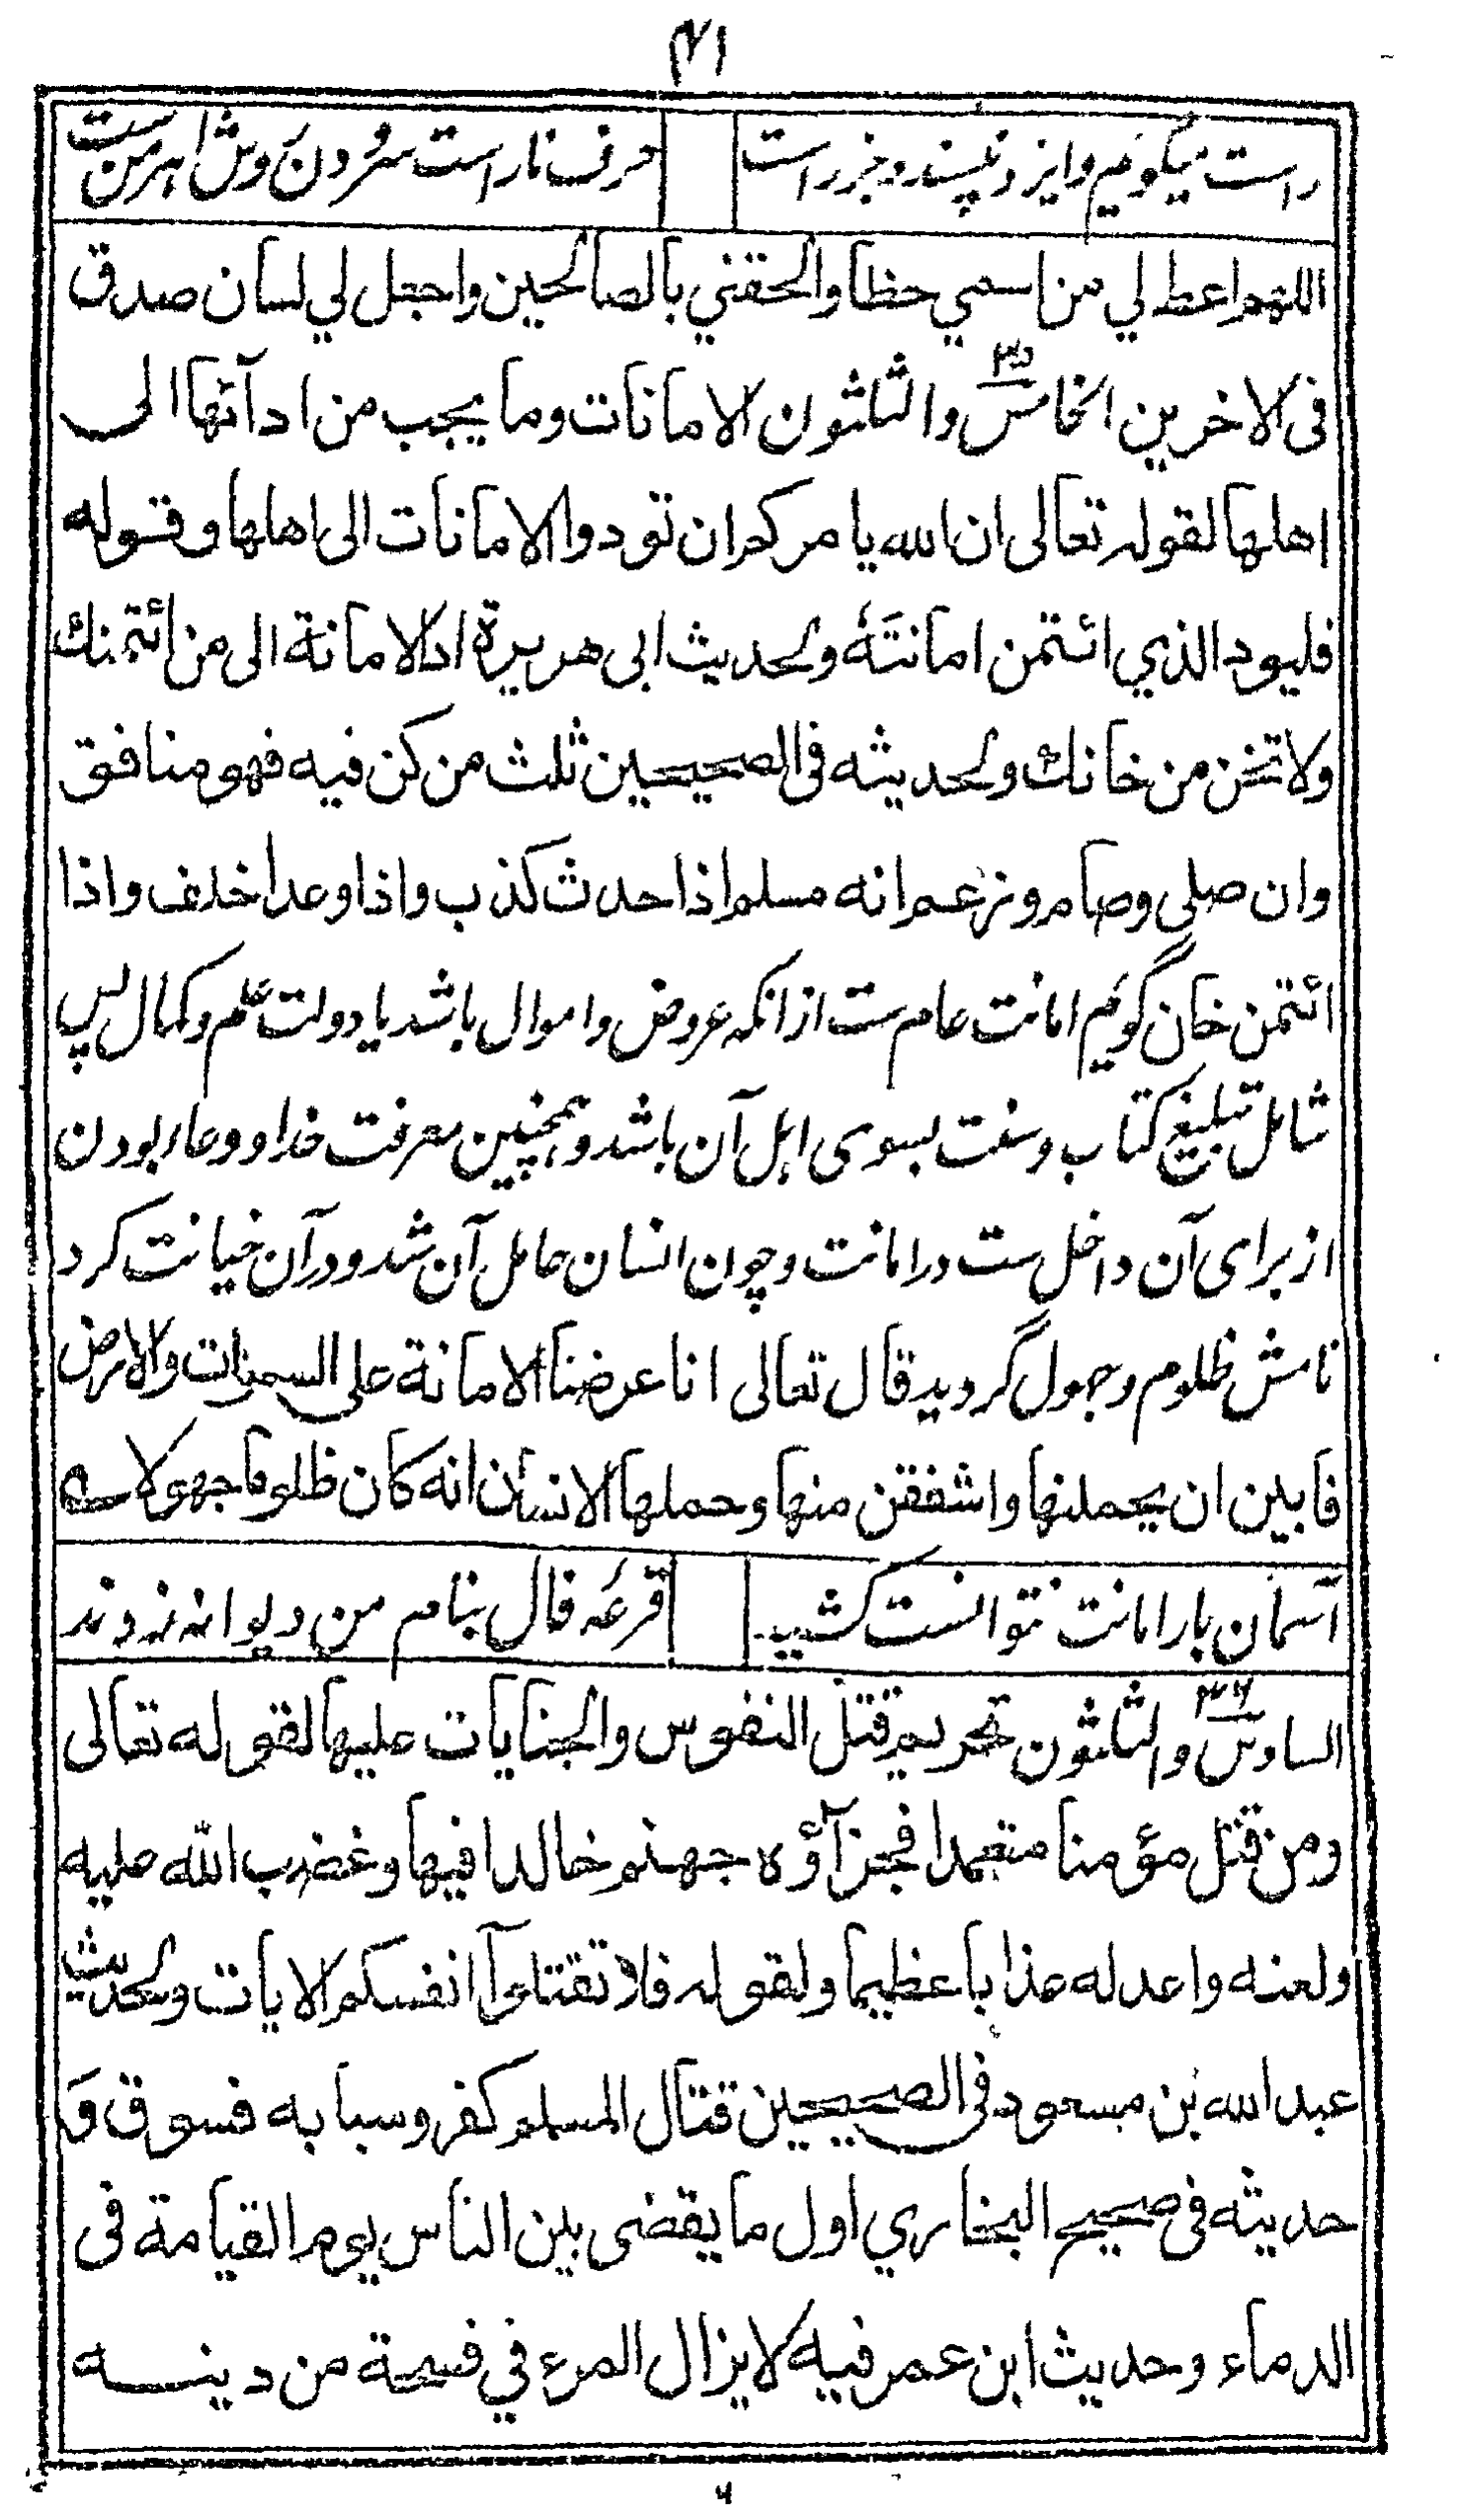 ۴۱
راست میگویم وایزد نپسندد جز راست حرف ناراست سرودن روش اهرمن ست
اللهم اعط لي من اسمي حظا والحقني بالصالحين واجعل لي لسان صدق
فى الاخرين الخامس ۳۵ والثلثون الامانات وما يجب من ادآئها الى
اهلها لقوله تعالى ان الله يامركم ان تودوا الامانات الى اهلها وقوله
فليود الذي ائتمن امانتهٔ ولحديث ابى هريرة اد الامانة الى من ائتمنك
ولا تخن من خانك ولحديثه فى الصحيحين ثلث من كن فيه فهو منافق
وان صلى وصام وزعم انه مسلم اذا حدث كذب واذا وعد اخلف واذا
ائتمن خان گویم امانت عام ست ازانکه عروض واموال باشد یا دولت علم وکمال پس
شامل تبلیغ کتاب وسنت بسوی اهل آن باشد وهمچنین معرفت خدا ووعار بودن
از برای آن داخل ست در امانت وچون انسان حامل آن شد ودرآن خیانت کرد
نامش ظلوم وجهول گردید قال تعالى انا عرضنا الامانة على السموات والارض
فابين ان يحملنها واشفقن منها وحملها الانسان انه كان ظلوما جهولا ــه
آسمان بار امانت نتوانست کشید قرعۂ فال بنام من دیوانه زدند
السادس ۳۶ والثلثون تحريم قتل النفوس والجنايات عليها لقوله تعالى
ومن قتل مؤمنا متعمدا فجزآؤه جهنم خالدا فيها وغضب الله عليه
ولعنه واعد له عذابا عظيما ولقوله فلا تقتلوآ انفسكم الايات ولحديث
عبد الله بن مسعود فى الصحيحين قتال المسلم كفر وسبابه فسوق و
حديثه فى صحيح البخاري اول ما يقضى بين الناس يوم القيامة فى
الدماء وحديث ابن عمر فيه لا يزال المرء في فسحة من دينـــه
۶